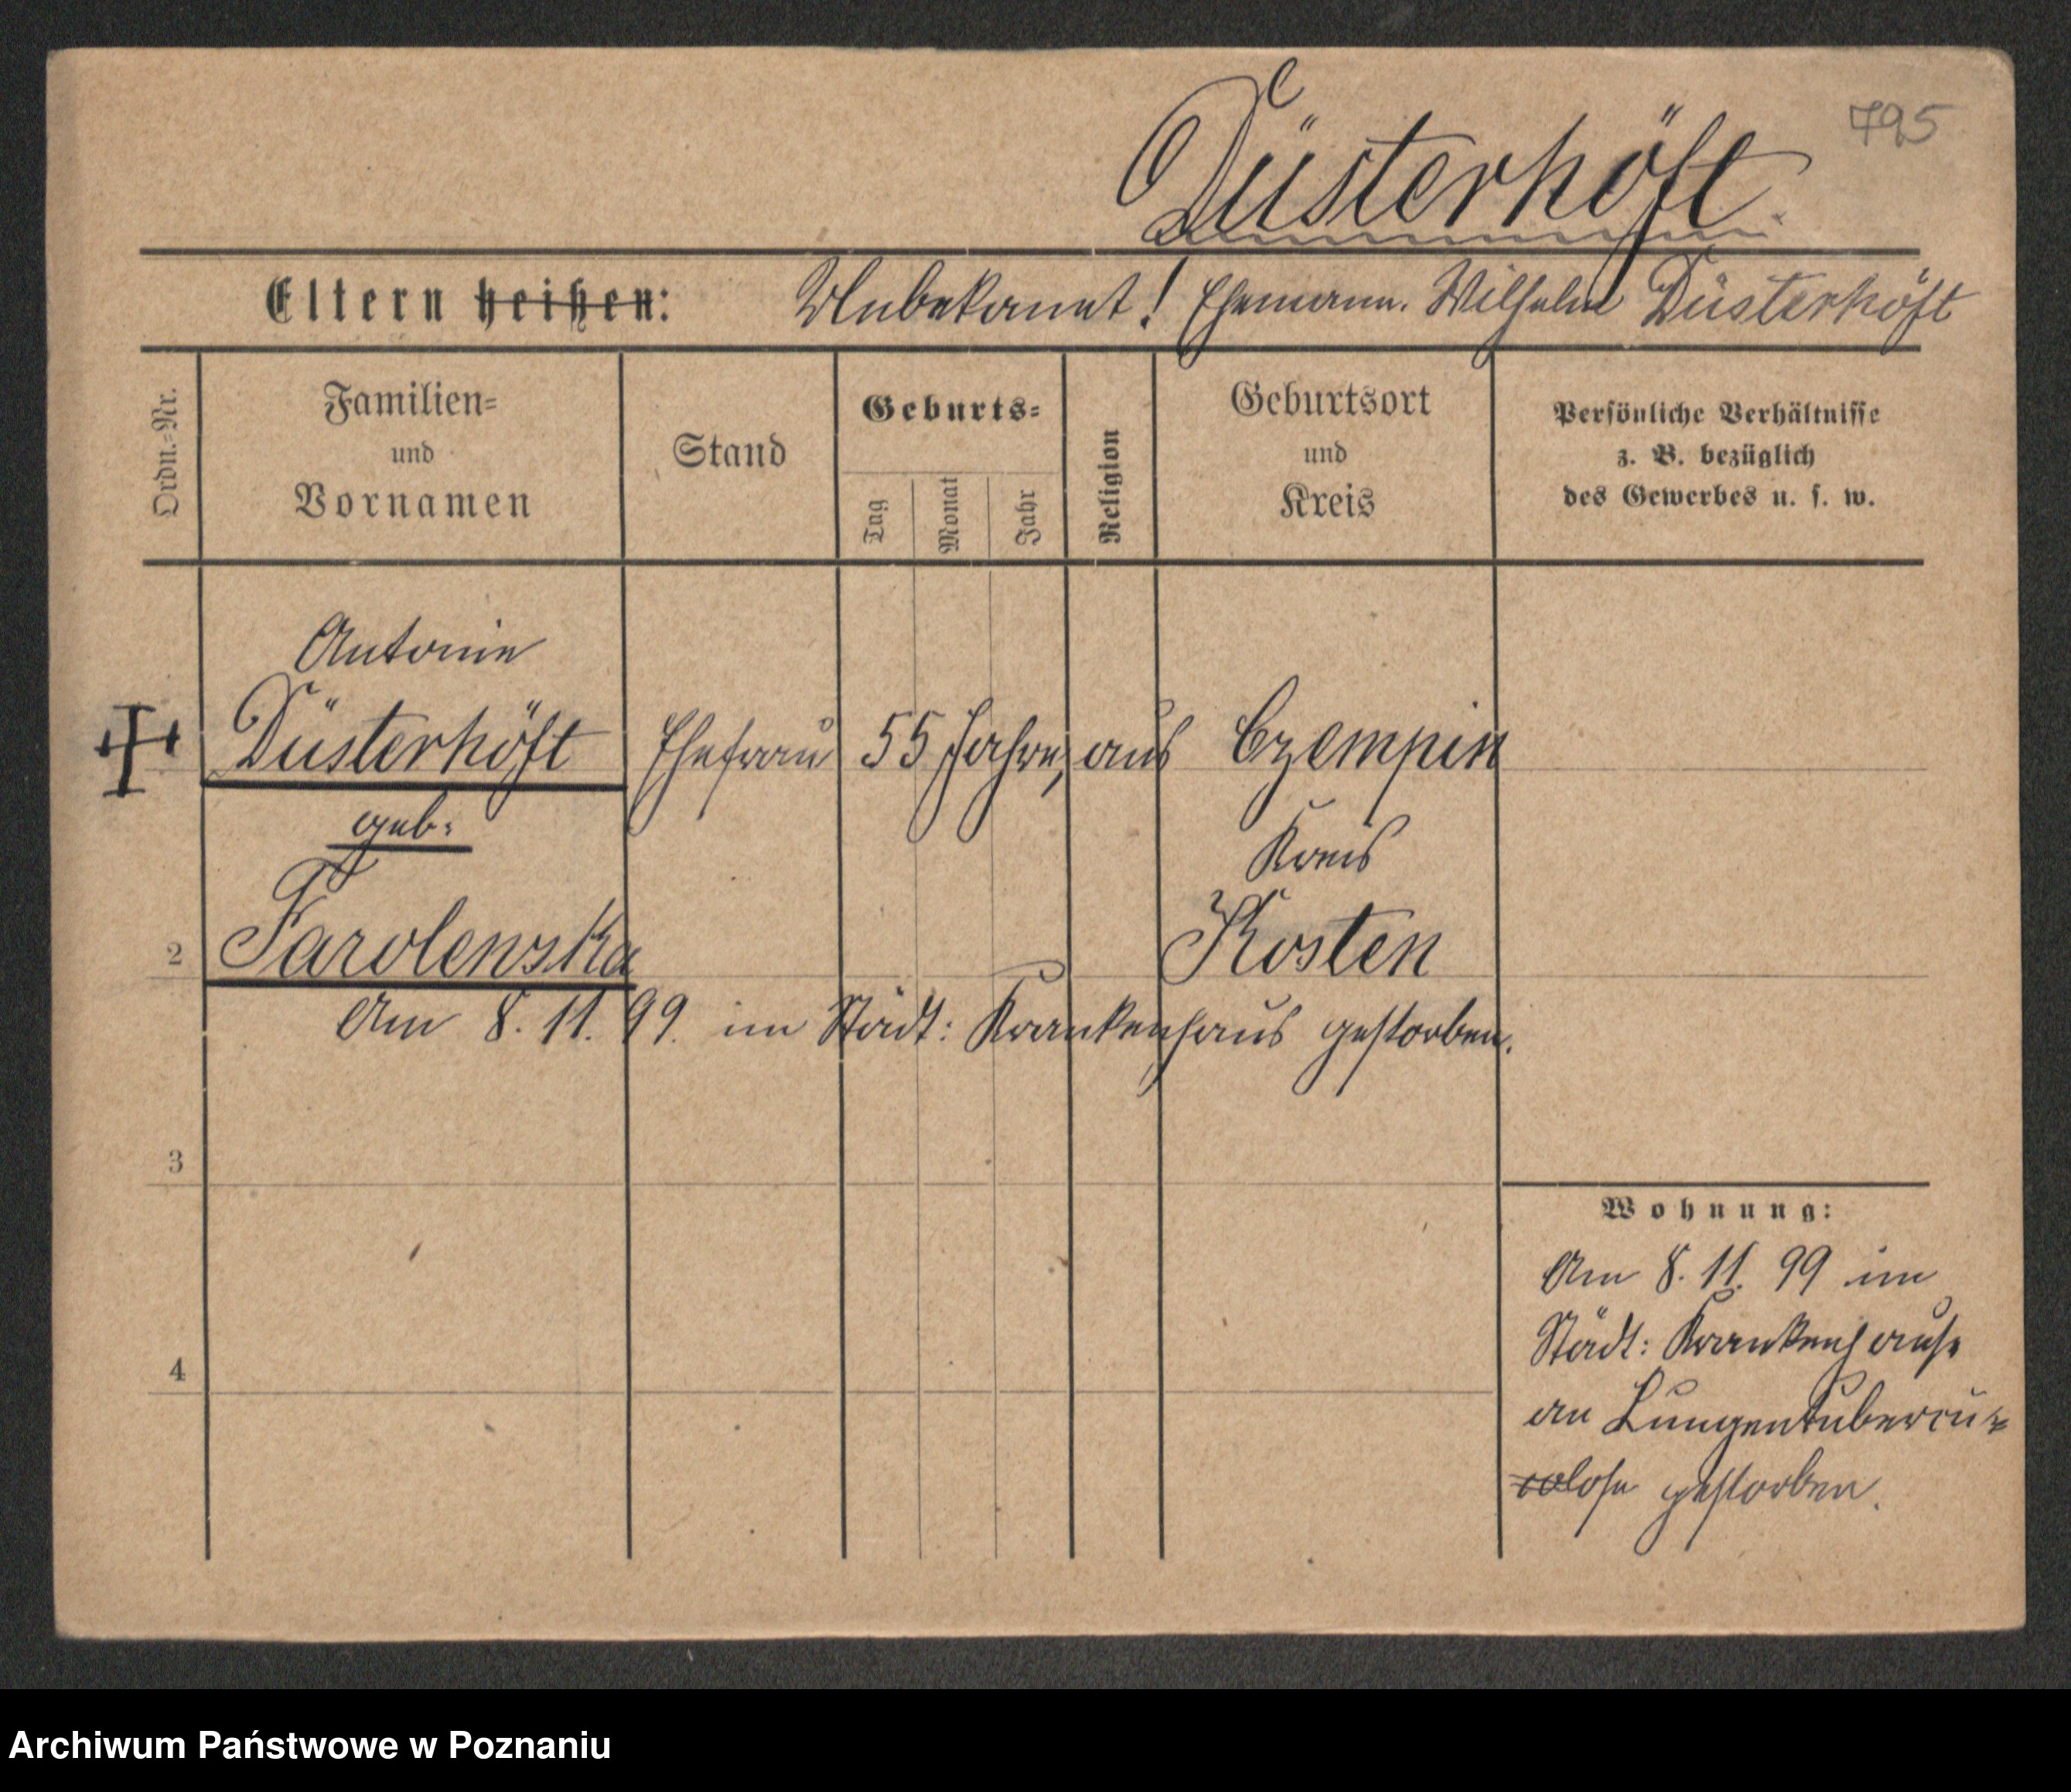 795
Düsterhöft.
Eltern heißen: Unbekannt! Ehemann. Wilhelm Düsterhöft
Ordn.=Nr.
Familien=
und
Vornamen
Stand
Geburts=
Tag
Monat
Jahr
Religion
Geburtsort
und
Kreis
Persönliche Verhältnisse
z. B. bezüglich
des Gewerbes u. s. w.
Antonie
Düsterhöft Ehefrau 55 Jahre, aus Czempin
geb:
Kreis
2 Farolenska Kosten
Am 8. 11. 99. im Städt: Krankenhaus gestorben.
3
4
Wohnung:
Am 8. 11. 99 im
Städt: Krankenhause
an Lungentubercu=
lose gestorben.
Archiwum Państwowe w Poznaniu